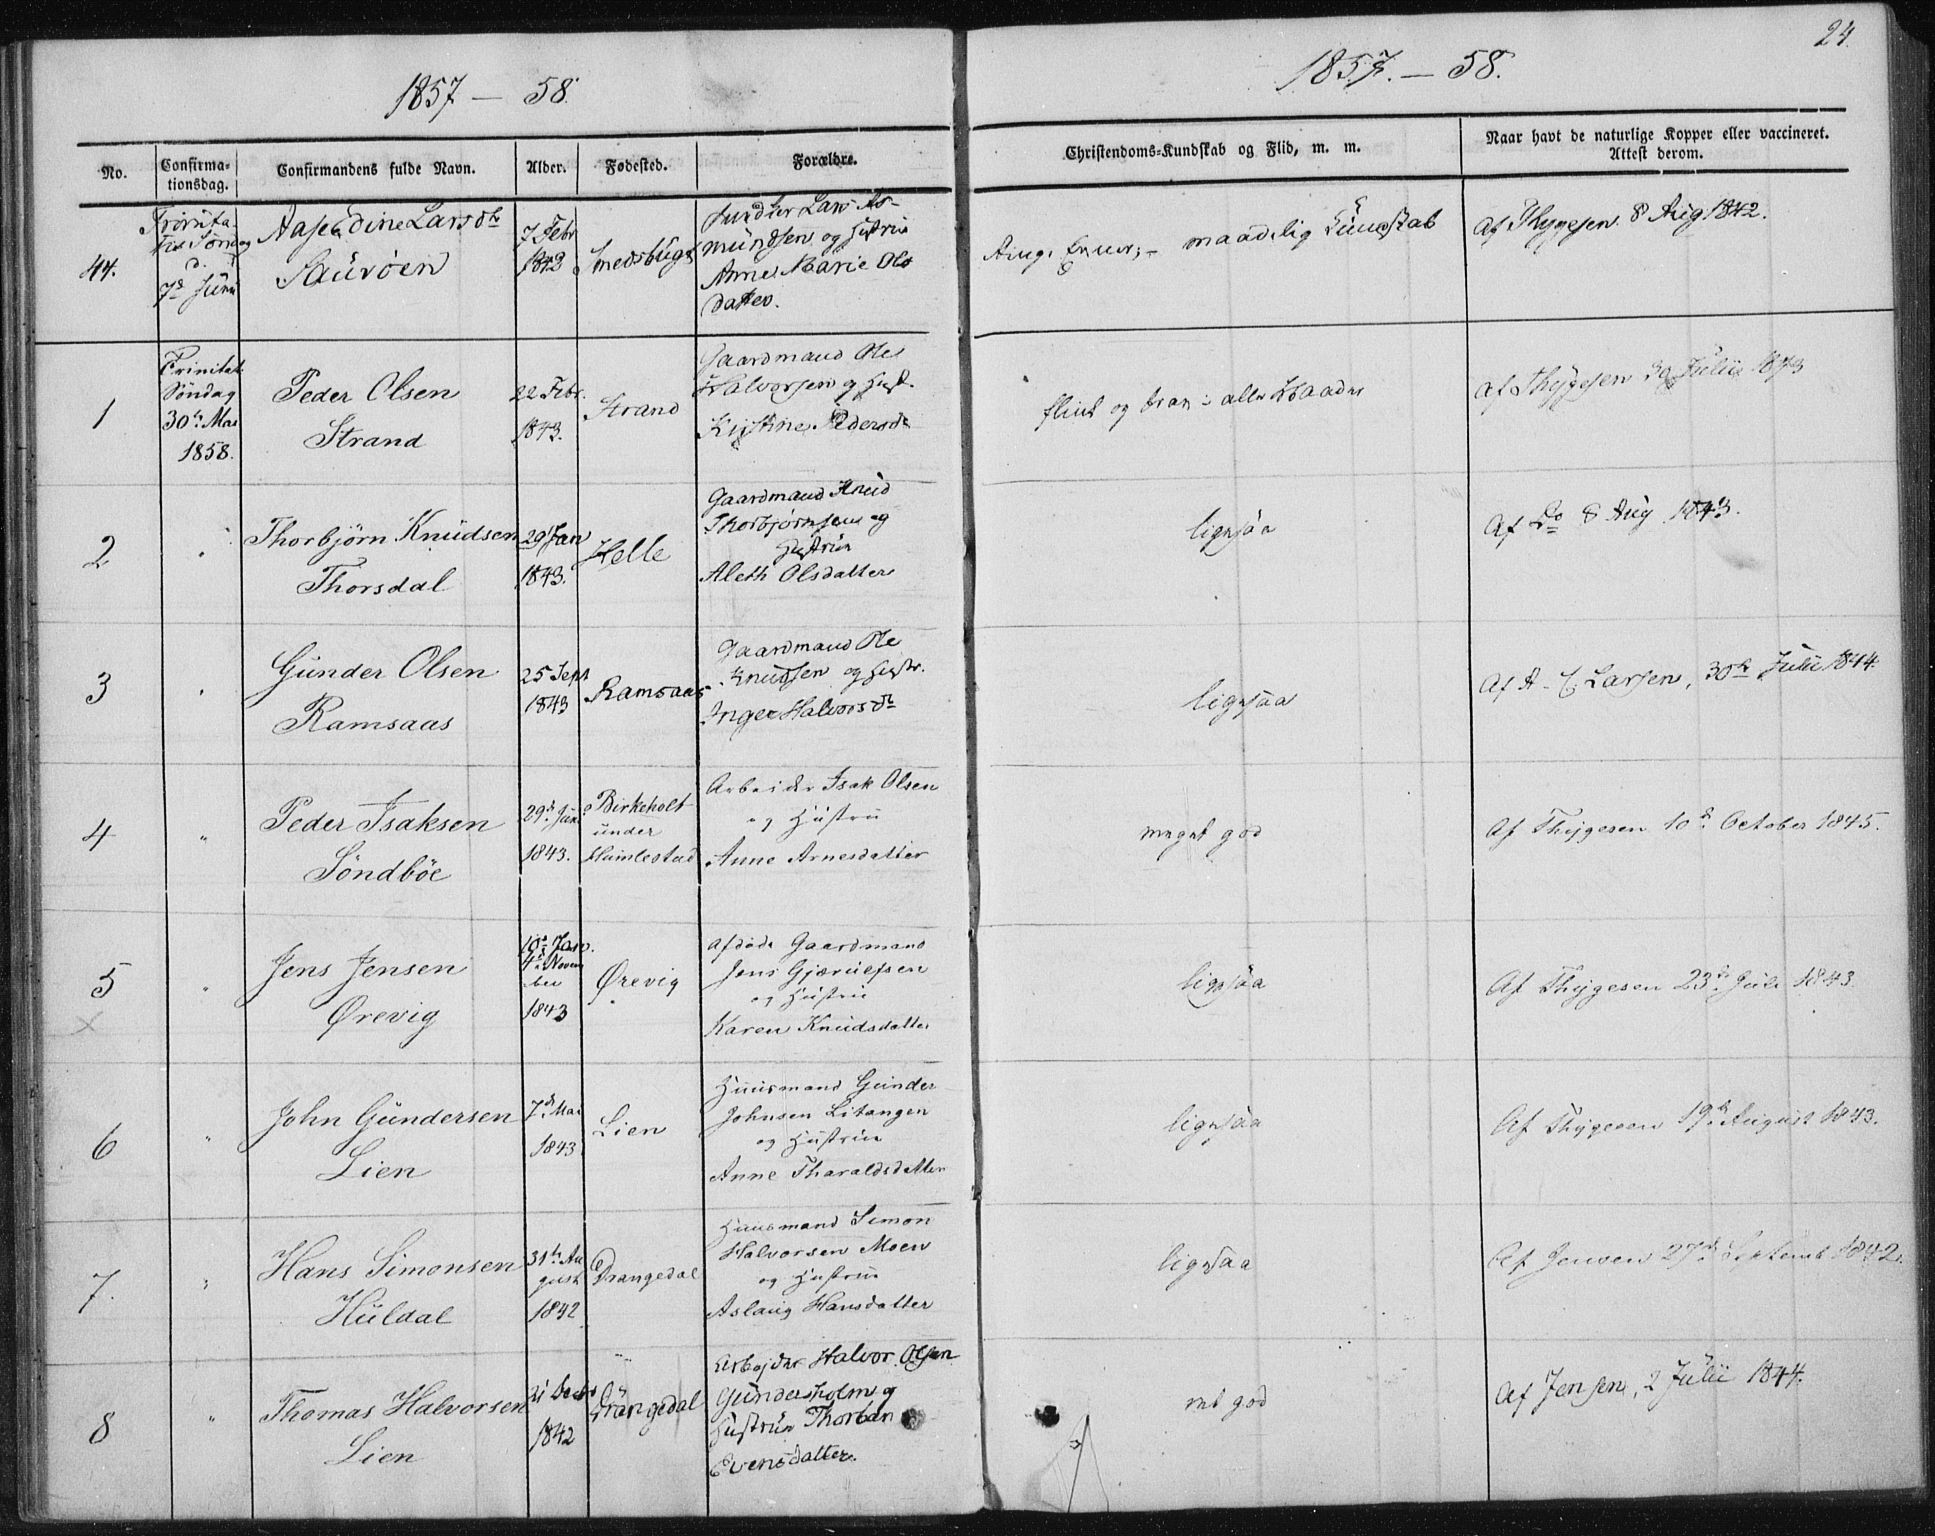 24.
1857 — 58.
1857. — 58.
No.
Confirma-
tionsdag.
Confirmandens fulde Navn.
Alder.
Fødested.
Forældre.
Christendoms-Kundskab og Flid, m. m.
Naar havt de naturlige Kopper eller vaccineret.
Attest derom.
44.
7de Juni
Larsdtr
7 Febr
1843
Lars As-
mundsen og Hustru
Anne Marie Ols
datter.
maadelig Kundskab
Af Thygesen 8 Aug 1842.
1
Trinitat.
Søndag
30te Mai
1858.
Peder Olsen
Strand
22 Febr.
1843.
Strand
Gaardmand Ole
Halvorsen og Hust.
Kirstine Pedersdr
flink og brav i alle Maader
Af Thygesen 30 Julii 1843
2
"
Thorbjörn Knudsen
Thorsdal
29 Jan
1843.
Helle
Gaardmand Knud
Thorbjørnsen og
Hustrue
Aleth Olsdatter
ligesaa
Af Do 8 Aug 1843.
3
"
Gunder Olsen
Ramsaas
25 Sept
1843
Ramsaas
Gaardmand Ole
Knudsen og Hustr.
Inger Halvorsdtr
ligesaa
Af A. C. Larsen, 30te Julii 1844.
4
"
Peder Isaksen
Söndböe
29de Juni
1843.
Birkeholt
under
Humlestad
Arbeider Isak Olsen
og Hustru
Anne Arnesdatter
meget god
Af Thygesen 10de October 1845.
5
"
Jens Jensen
Ørevig
10de Jan.
4de Novem
ber
1843
Ørevig
afdöde Gaardmand
Jens Gjeruldsen
og Hustrue
Karen Knudsdatter
ligesaa
Af Thygesen 23de Juli 1843.
6
"
John Gundersen
Lien
7de Mai
1843
Lien
Huusmand Gunder
Johnsen Litangen
og Hustrue
Anne Tharaldsdatter
ligesaa
Af Thygesen 19de August 1843.
7.
"
Hans Simonsen
Huldal
31te Au
gust
1842
Drangedal
Huusmand Simon
Halvorsen Moen
og Hustrue
Aslaug Hansdatter
ligesaa
Af Jensen 27de Septemb 1842.
8
"
Thomas Halvorsen
Lien
1842
Drangedal
Arbejder Halvor Olsen
Gundersholm og
Hustrue
Evensdatter.
god
Af Jensen, 2 Julii 1844.